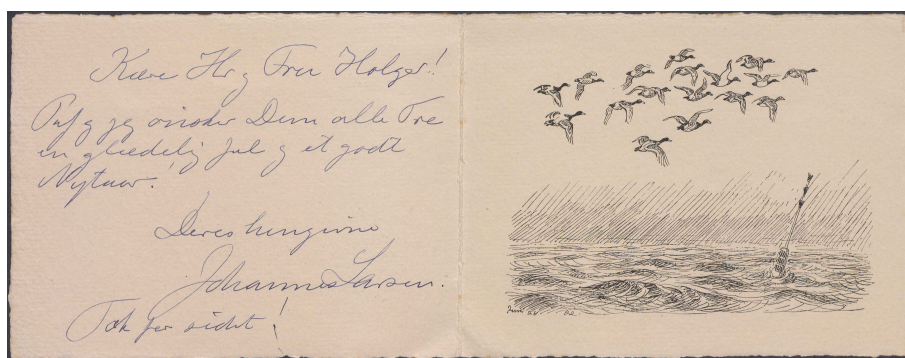 Kære Hr og Fru Holger!
Puf og jeg ønsker Dem alle Tre
en glædelig Jul og et godt
Nytaar!
Deres hengivne
Johannes Larsen.
Tak for sidst!